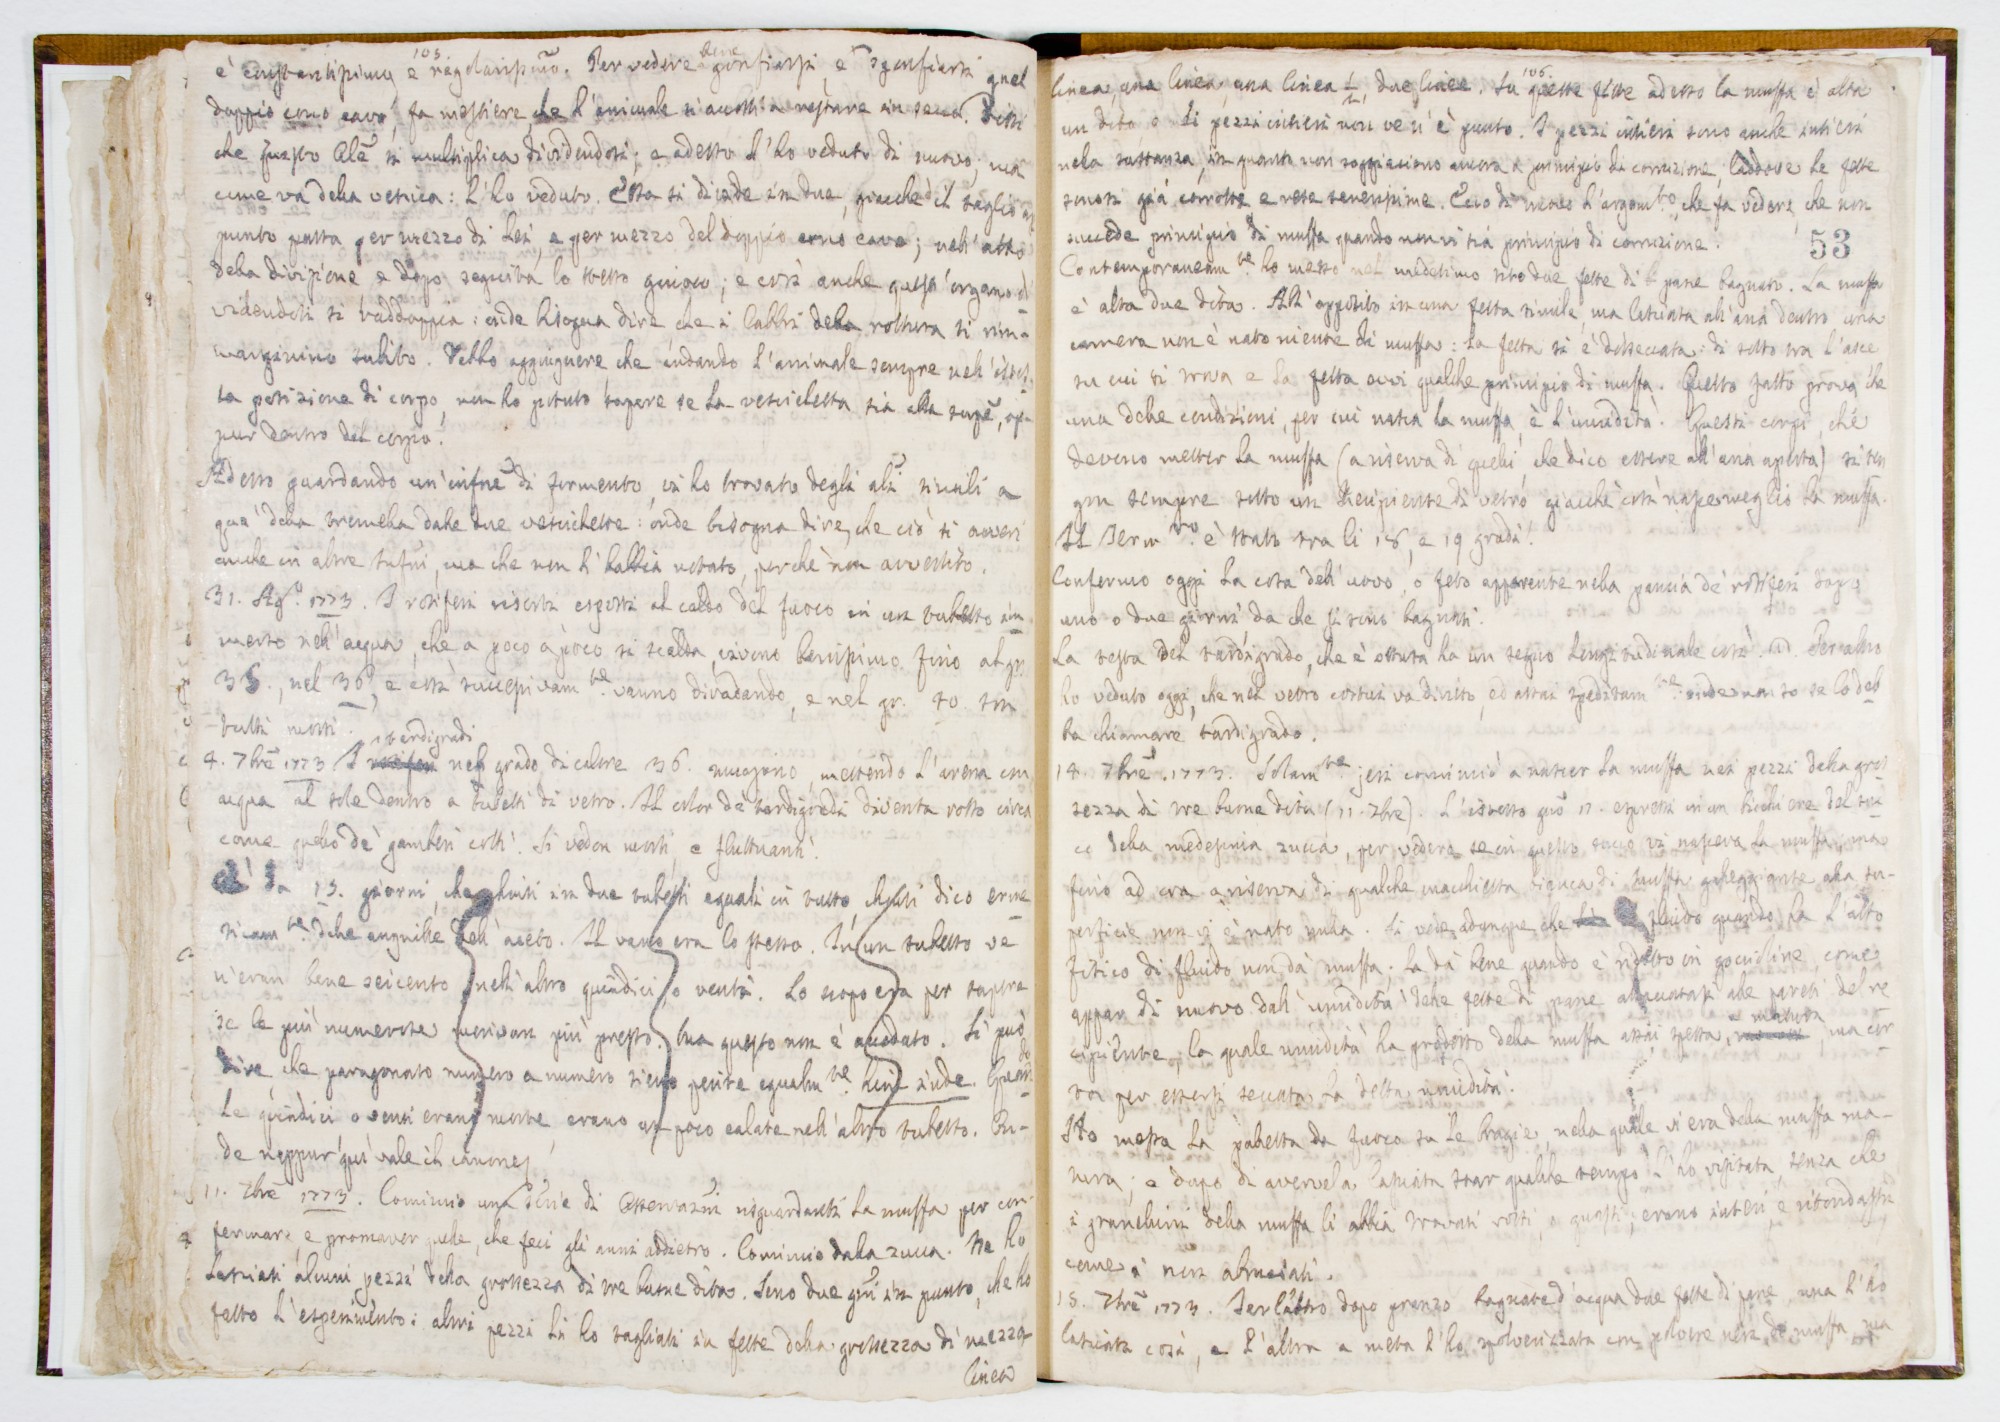 105.
è constantissimo e regolarissimo. Per vedere bene gonfiarsi, e sgonfiarsi quel
doppio cono cavo, fa mestiere, che l'animale s'accosti a restare in secco. Dissi
che questo Ale si multiplica dividendosi; e adesso l'ho veduto di nuovo, ma
come va della vesica: l'ho veduto. Essa si divide in due, giacchè il taglio ap
punto passa per mezzo di Lei, e per mezzo del doppio cono cavo; nell'atto
della divisione e dopo seguita lo stesso giuoco; e così anche quest'organo di
videndosi si raddoppia: onde bisogna dire che i labbri della rottura si rim-
marginino subito. Debbo aggiugnere che andando l'animale sempre nell'istes
sa posizione di corpo, non ho potuto sapere se la vescichetta sia alla superfe, op-
pur dentro del corpo.
Adesso guardando un'infne di formento, vi ho trovato degli ali simili a
quei della tremella dalle due vescichette: onde bisogna dire, che ciò si avveri
anche in altre infni, ma che non l'habbia notato, perchè non avvertito.
31. Ago. 1773. I rotiferi risorti esposti al caldo del fuoco in un tubetto im
merso nell'acqua, che a poco a poco si scalda, vivono benissimo fino al gr.
35., nel 36, e così successivamte vanno diradando, e nel gr. 40 son
tutti morti.
4. 7bre 1773 I tardigradi nel grado di calore 36. muojono, mettendo l'arena con
acqua al sole dentro a tubetti di vetro. Il color de' tardigradi diventa rosso circa
come quello de' gamberi cotti. Si vedon morti, e fluttuanti.
Da 13. giorni, che chiusi in due tubetti eguali in tutto, chiusi dico erme
ticamte delle anguille dell'aceto. Il vano era lo stesso. In un tubetto ve
n'eran bene seicento, nell'altro quindici, o venti. Lo scopo era per sapere
se le più numerose morivan più presto, ma questo non è accaduto. Si può
dire, che paragonato numero a numero sieno perite egualmte hinc inde. Quando
le quindici o venti erano morte, erano un poco calate nell'altro tubetto. On-
de neppur qui vale il canone
11. 7bre 1773. Comincio una serie di osservazni risguardanti la muffa per con-
fermare, e promover quelle, che feci gli anni addietro. Comincio dalla zucca. Ne ho
lasciati alcuni pezzi della grossezza di tre buone dita. Sono due gni in punto, che ho
fatto l'esperimento: altri pezzi li ho tagliati in fette della grossezza di mezza
linea
106.
linea, una linea, una linea 1/2, due linee. Su queste fette adesso la muffa è alta
un dito. Su li pezzi intieri non ve n'è punto. I pezzi intieri sono anche intieri
nella sostanza, in quanto non soggiacciono ancora a principio di corruzione, laddove le fette
sonosi già corrotte e rese tenerissime. Ecco di nuovo l'argomto, che fa vedere, che non
succede principio di muffa quando non vi sia principio di corruzione.
53
Contemporaneamte ho messo nel medesimo sito due fette di pane bagnato. La muffa
è alta due dita. All'opposito in una fetta simile, ma lasciata all'aria dentro una
camera non è nato niente di muffa: la fetta si è disseccata: di sotto tra l'asse
su cui si trova e la fetta avvi qualche principio di muffa. Questo fatto prova che
una delle condizioni, per cui nasca la muffa, è l'umidità. Questi corpi, che
devono metter la muffa (a riserva di quelli che dico essere all'aria aperta) si ten
gon sempre sotto un Recipiente di vetro giacchè così nasce meglio la muffa.
Il Termro è stato tra li 18, e 19 gradi.
Confermo oggi la cosa dell'uovo, o feto apparente nella pancia de' rotiferi dopo
uno o due giorni da che si sono bagnati.
La testa del tardigrado, che è ottusa ha un segno longitudinale così. Peraltro
ho veduto oggi, che nel vetro costui va diritto, ed assai speditamte: onde non so se lo deb
ba chiamare tardigrado.
14. 7bre. 1773. Solamte jeri cominciò a nascer la muffa nei pezzi della gros
sezza di tre buone dita (11. 7bre). L'istesso gno 11. espressi in un bicchiere del suc
co della medesima zucca, per vedere se in questo succo vi nasceva la muffa, ma
fino ad ora a riserva di qualche macchietta bianca di muffa galleggiante alla su-
perficie non vi è nato nulla. Si vede adunque che fluido quando ha l'atto
fisico di fluido non dà muffa. La dà bene quando è ridotto in goccioline, come
appar di nuovo dall'umidità delle fette di pane attaccatasi alle pareti del re
cipiente, la quale umidità ha prodotto della muffa assai spessa, e matura, ma cor
ta per essersi seccata la detta umidità.
Ho messa la paletta da fuoco su le bragie, nella quale vi era della muffa ma-
tura; e dopo di avervela lasciata star qualche tempo l'ho visitata, senza che
i granellini della muffa li abbia trovati rotti, o guasti; erano intieri, e ritondastri
come i non abbruciati.
15. 7bre 1773. Jer l'altro dopo pranzo bagnate d'acqua due fette di pane, una l'ho
lasciata così, e l'altra a meta l'ho spolverizzata con polvere nera di muffa ma